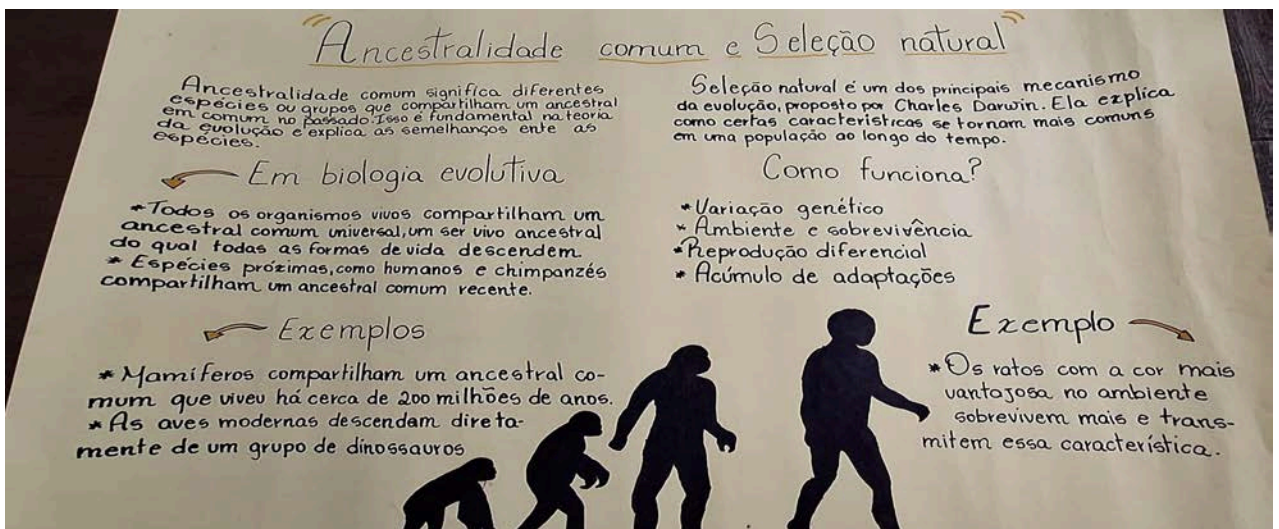 "Ancestralidade comum e Seleção natural"
Ancestralidade comum significa diferentes
espécies ou grupos que compartilham um ancestral
em comum no passado. Isso é fundamental na teoria
da evolução e explica as semelhanços ente as
espécies.
Em biologia evolutiva
* Todos os organismos vivos compartilham um
ancestral comum universal, um ser vivo ancestral
do qual todas as formas de vida descendem
* Espécies próximas, como humanos e chimpanzés
compartilham um ancestral comum recente.
Exemplos
* Mamíferos compartilham um ancestral co-
mum que viveu há cerca de 200 milhões de anos.
* As aves modernas descendam direta-
mente de um grupo de dinossauros
Seleção natural é um dos principais mecanismo
da evolução, proposto por Charles Darwin. Ela explica
como certas características se tornam mais comuns
em uma população ao longo do tempo.
Como funciona?
* Variação genético
* Ambiente e sobrevivência
* Reprodução diferencial
* Acúmulo de adaptações
Exemplo
* Os ratos com a cor mais
vantajosa no ambiente
sobrevivem mais e trans-
mitem essa característica.